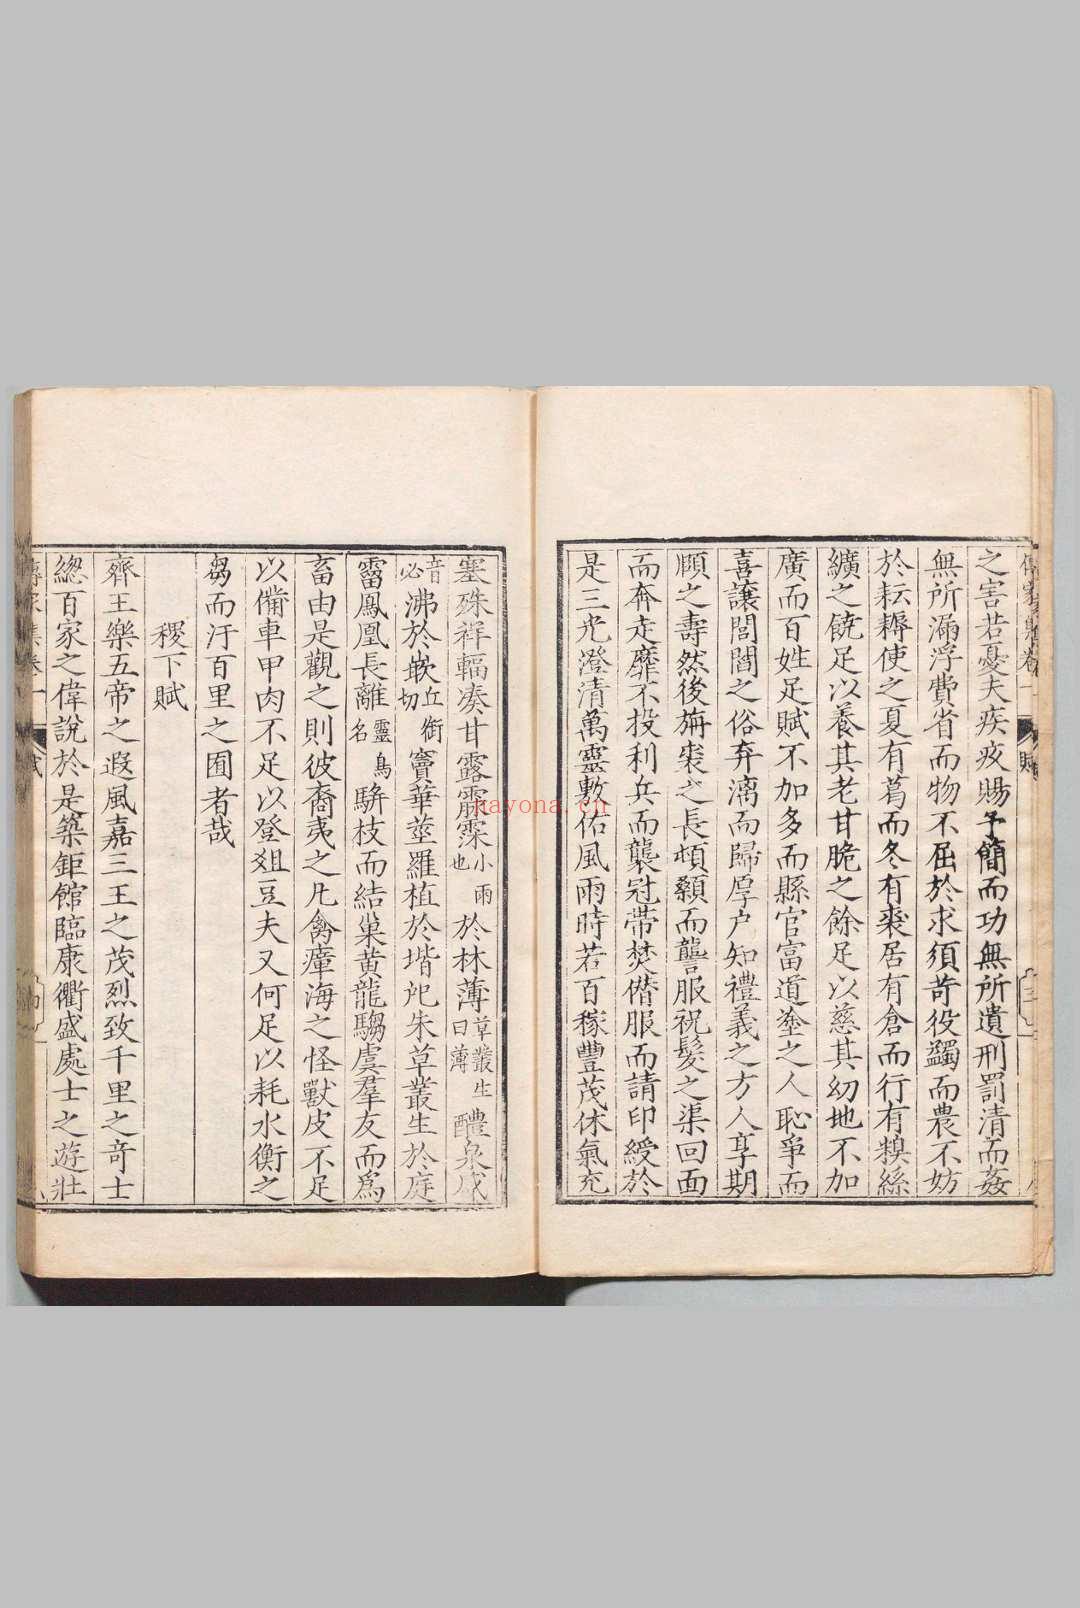 之害若憂夫疾疫賜予簡而功無所遺刑罰清而姦
無所漏浮費省而物不屈於求須苛役蠲而農不妨
於耘耨使之夏有葛而冬有裘居有倉而行有糗絲
纊之饒足以養其老甘脆之餘足以慈其幼地不加
廣而百姓足賦不加多而縣官富道塗之人恥爭而
喜讓閭閻之俗弃漓而歸厚户知禮義之方人享期
頤之壽然後旃裘之長頓顙而讋服祝髮之渠回面
而奔走靡不投利兵而襲冠帶焚僣服而請印綬於
是三光澄清萬靈敷佑風雨時若百稼豐茂休氣充
塞殊祥輻凑甘露霢霂小雨也於林薄草叢生曰薄醴泉咸
音必沸於嵌丘銜切竇華莖羅植於堦戺朱草叢生於庭
霤鳳凰長離靈鳥名駢枝而結巢黄龍騶虞羣友而爲
畜由是觀之則彼裔夷之凡禽瘴海之怪獸皮不足
以備車甲肉不足以登俎豆夫又何足以耗水衡之
芻而汙百里之囿者哉
稷下賦
齊王樂五帝之遐風嘉三王之茂烈致千里之奇士
緫百家之偉說於是築鉅館臨康衢盛處士之遊壯
傳家集卷一
賦
kayona.cn